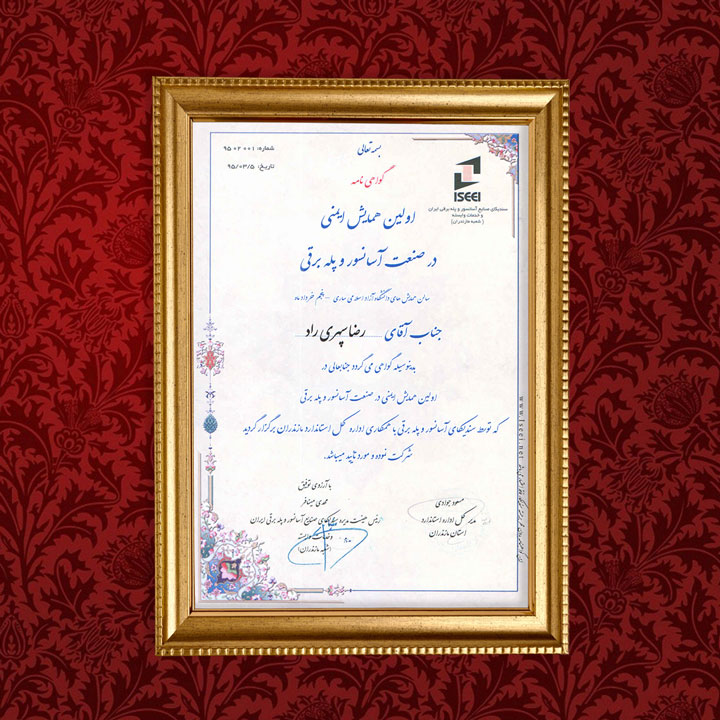 بسمه تعالی
شماره: ۹۵۰۲۰۰۱
تاریخ: ۹۵/۰۳/۵
گواهی نامه
ISEEI
سندیکای صنایع آسانسور و پله برقی ایران
و خدمات وابسته
( شعبه مازندران )
اولین همایش ایمنی
در صنعت آسانسور و پله برقی
سالن همایش های دانشگاه آزاد اسلامی ساری - پنجم خرداد ماه
جناب آقای رضا سپهری راد
بدینوسیله گواهی می گردد جنابعالی در
اولین همایش ایمنی در صنعت آسانسور و پله برقی
که توسط سندیکای آسانسور و پله برقی با همکاری اداره کل استاندارد مازندران برگزار گردید
شرکت نموده و مورد تایید میباشد.
با آرزوی توفیق
مسعود جوادی
مدیر کل اداره استاندارد
استان مازندران
مهدی
رئیس هیئت مدیره سندیکای صنایع آسانسور و پله برقی ایران
و خدمات وابسته
(شعبه مازندران)
www.iseei.net